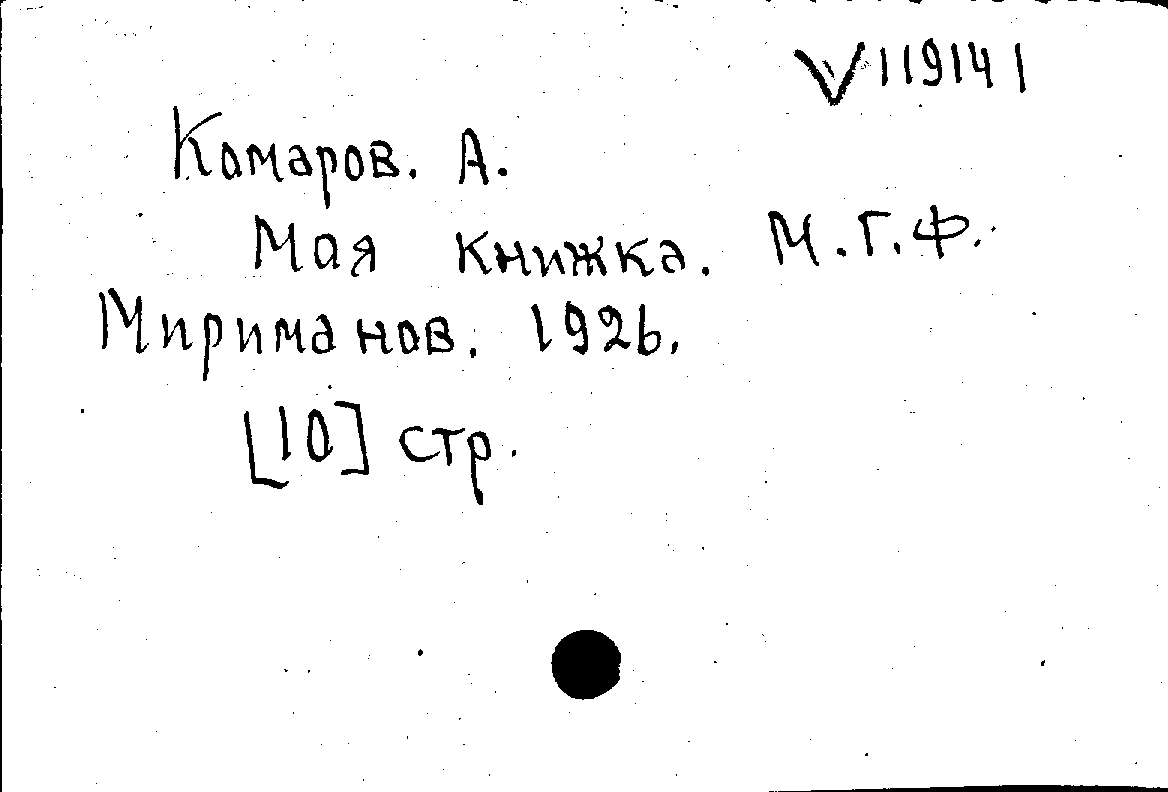 V 119141
Комаров. А.
Моя книжка. М. Г. Ф.
Мириманов. 1926.
[10] стр.